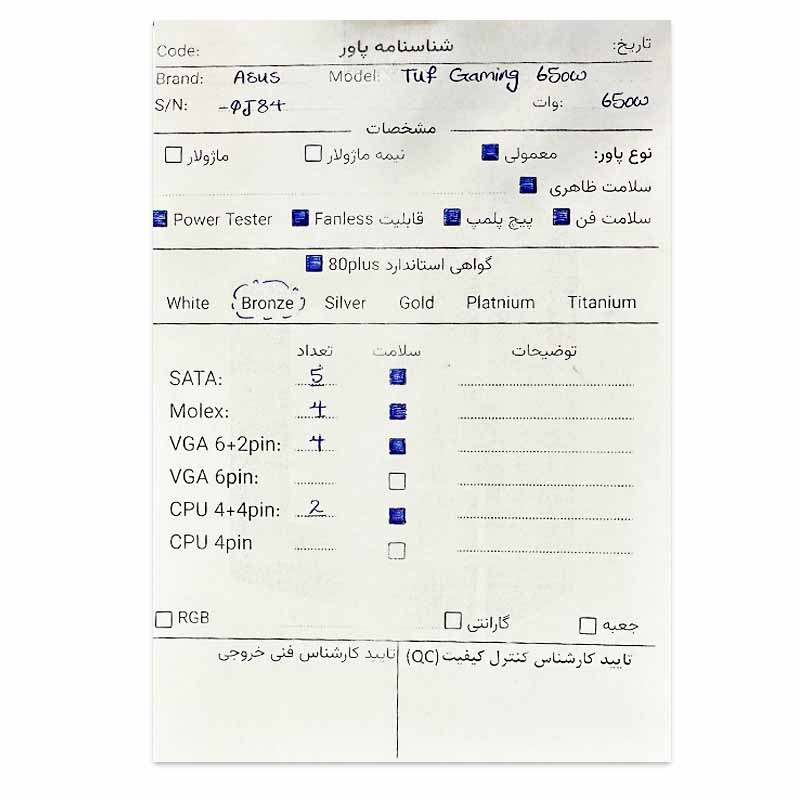 Code: شناسنامه پاور تاریخ:
Brand: ASUS Model: Tuf Gaming 650w
S/N: -φJ84 وات: 650w
مشخصات
نوع پاور: معمولی نیمه ماژولار ماژولار
سلامت ظاهری
سلامت فن پیچ پلمپ قابلیت Fanless Power Tester
گواهی استاندارد 80plus
White Bronze Silver Gold Platnium Titanium
تعداد سلامت توضیحات
SATA: 5
Molex: 4
VGA 6+2pin: 4
VGA 6pin:
CPU 4+4pin: 2
CPU 4pin
RGB گارانتی جعبه
تایید کارشناس کنترل کیفیت (QC) تایید کارشناس فنی خروجی